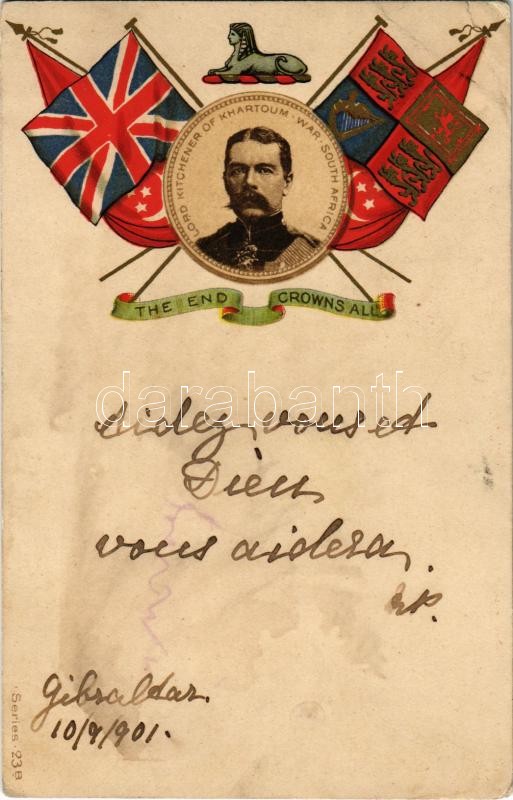 LORD KITCHENER OF KHARTOUM · WAR · SOUTH AFRICA
THE END CROWNS ALL
aidez vous et
Dieu
vous aidera.
Gibraltar.
10/9/901.
Series. 23 B
darabanth.com